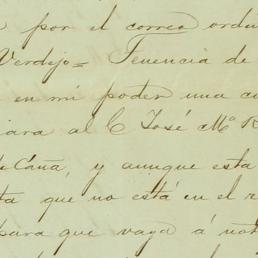 por el correo ordi
Verdejo = Tenencia de
en mi poder una c
para al C José Mª R
de Caña, y aunque esta
ta que no está en el r
para que vaya á not